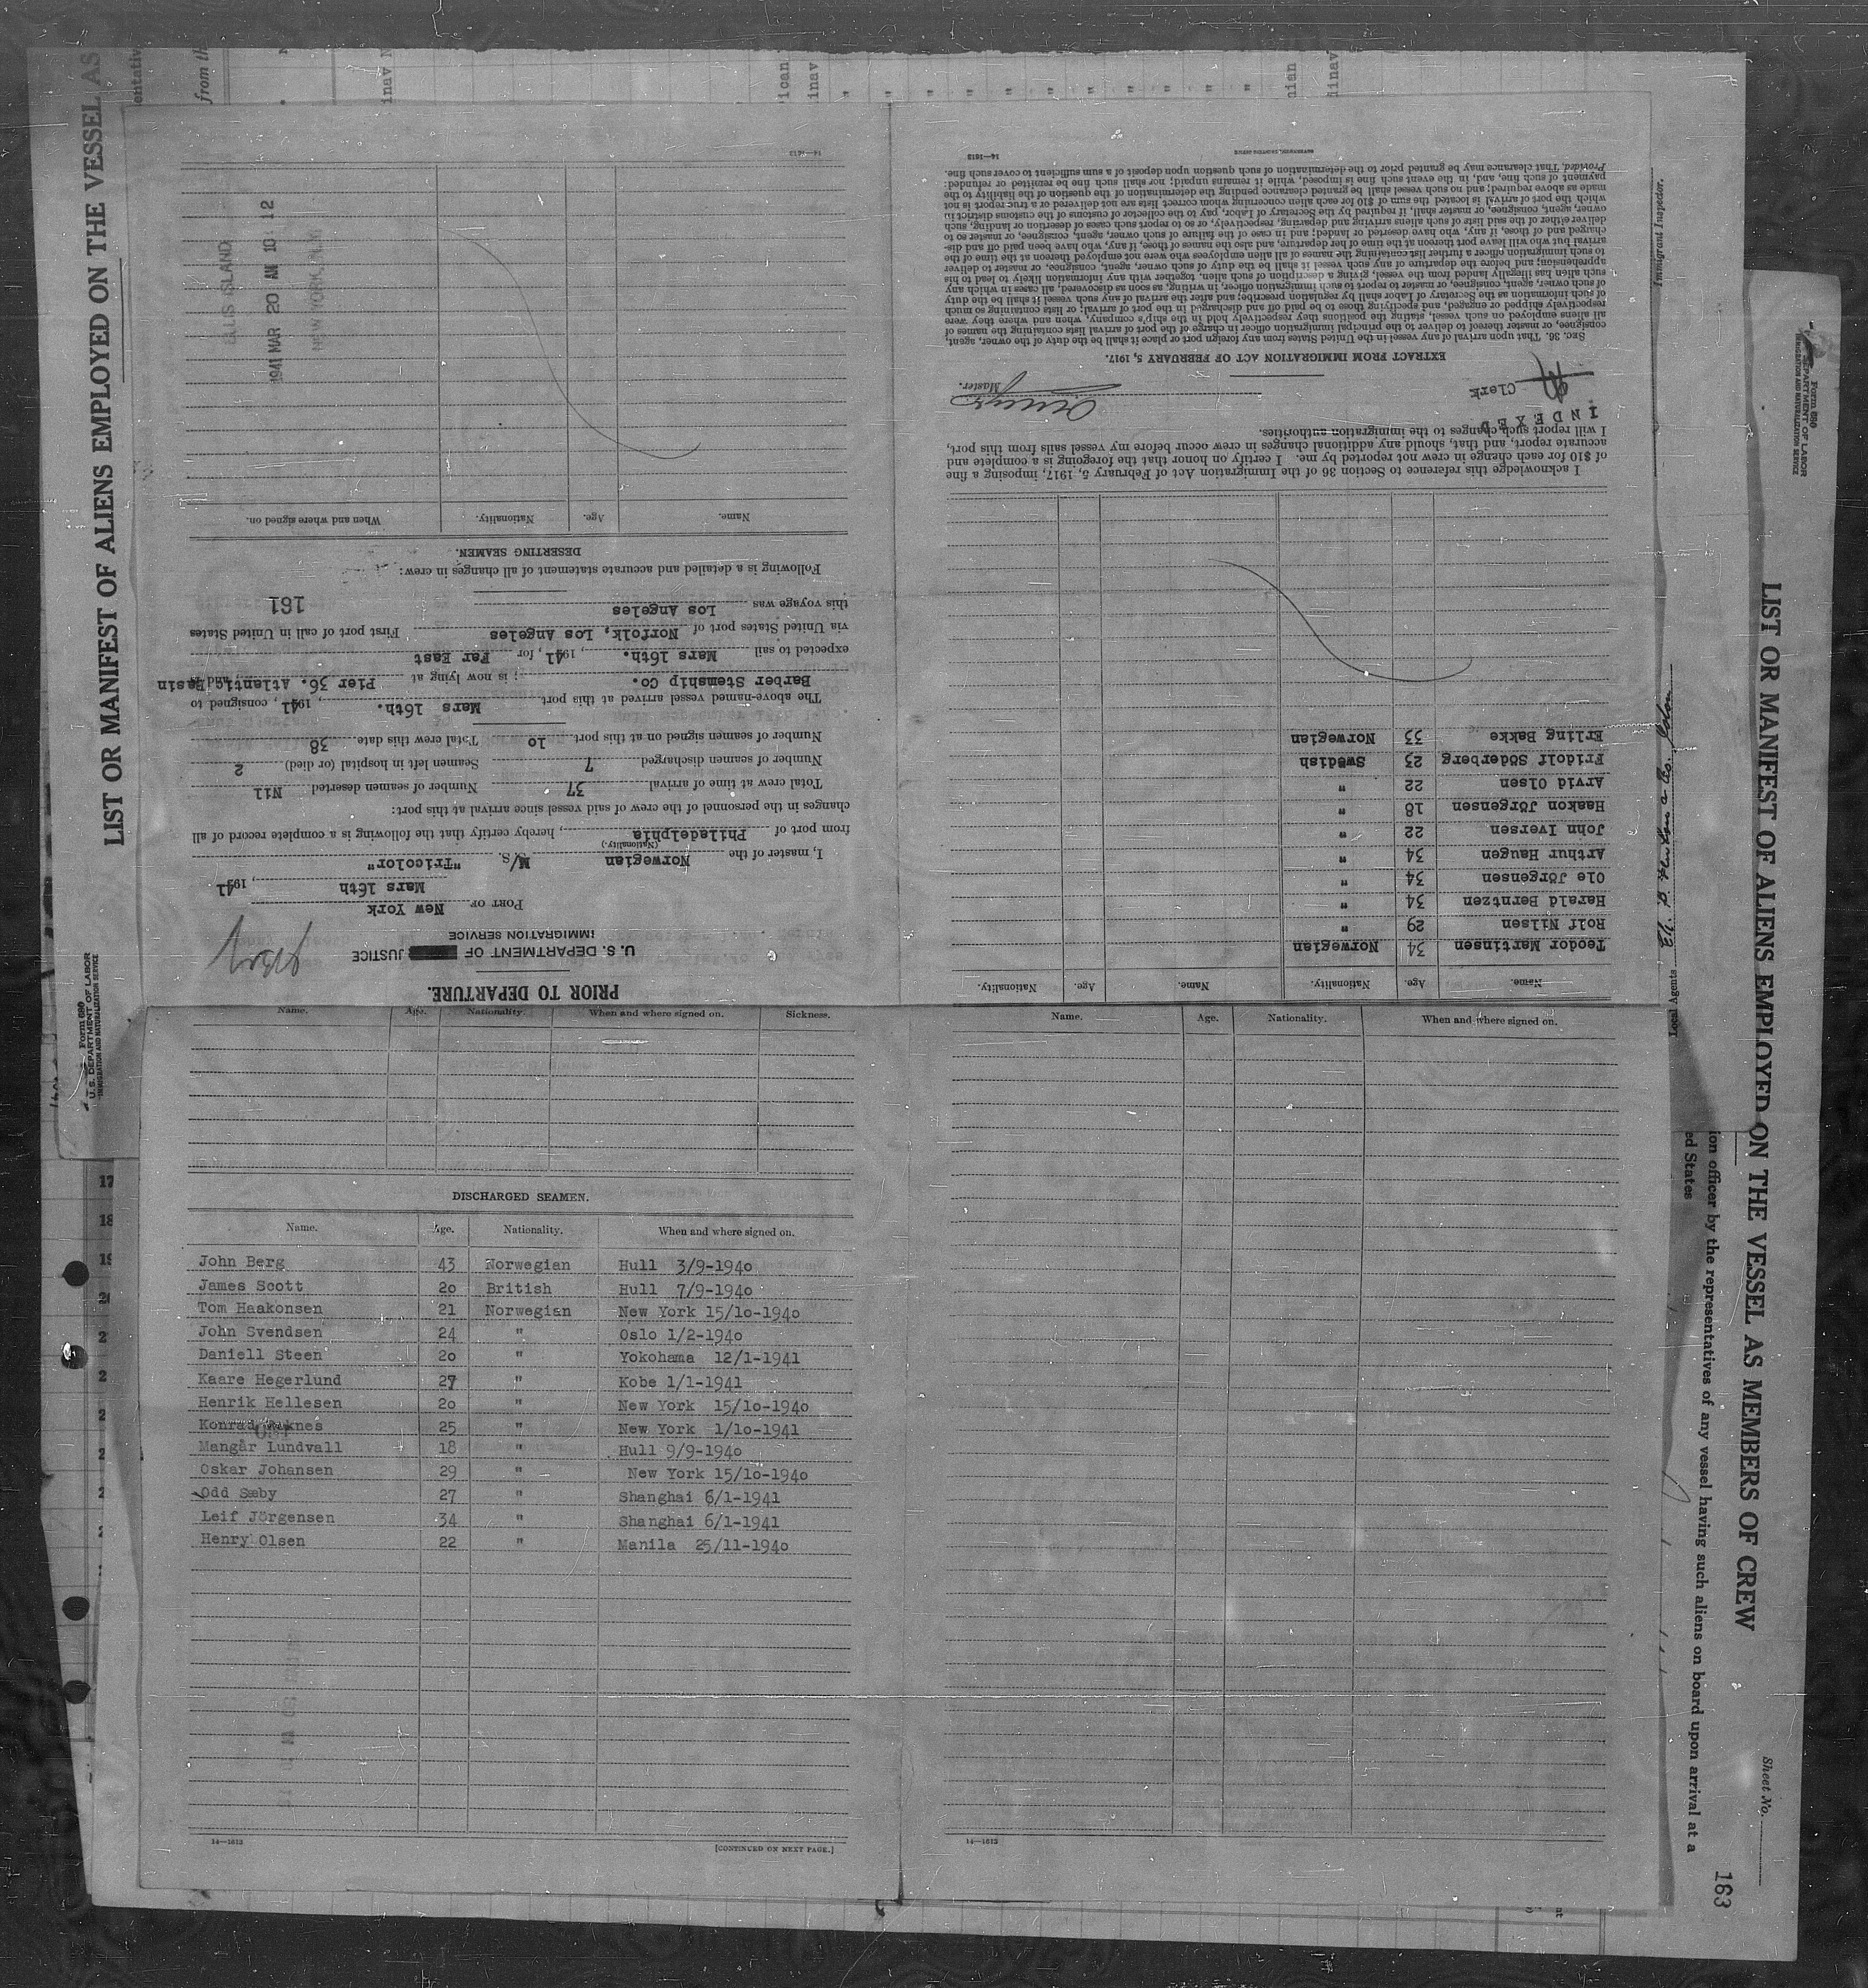 LIST OR MANIFEST OF ALIENS EMPLOYED ON THE VESSEL AS
Form 680
U. S. DEPARTMENT OF LABOR
IMMIGRATION AND NATURALIZATION SERVICE
PRIOR TO DEPARTURE.
U. S. DEPARTMENT OF JUSTICE
IMMIGRATION SERVICE
PORT OF New York
Mars 16th, 1941
I, master of the Norwegian M/S. "Tricolor"
(Nationality.)
from port of Philadelphia, hereby certify that the following is a complete record of all
changes in the personnel of the crew of said vessel since arrival at this port:
Total crew at time of arrival 37 Number of seamen deserted Nil
Number of seamen discharged 7 Seamen left in hospital (or died) 2
Number of seamen signed on at this port 10 Total crew this date 38
The above-named vessel arrived at this port Mars 16th. , 1941, consigned to
Barber Stemship Co. ; is now lying at Pier 36. Atlantic Basin, and is
expected to sail Mars 16th. , 1941, for Far East
via United States port of Norfolk, Los Angeles First port of call in United States
this voyage was Los Angeles
161
Following is a detailed and accurate statement of all changes in crew:
DESERTING SEAMEN.
Name. Age. Nationality. When and where signed on.
ELLIS ISLAND
1941 MAR 20 AM 10 12
NEW YORK, N.Y.
14—1613
Name. Age. Nationality. Name. Age. Nationality.
Teodor Martinsen 34 Norwegian
Rolf Nilsen 29 "
Harald Berntzen 34 "
Ole Jörgensen 34 "
Arthur Haugen 34 "
John Iversen 22 "
Haakon Jörgensen 18 "
Arvid Olsen 22 "
Fridolf Söderberg 23 Swedish
Erling Bakke 33 Norwegian
I acknowledge this reference to Section 36 of the Immigration Act of February 5, 1917, imposing a fine
of $10 for each change in crew not reported by me. I certify on honor that the foregoing is a complete and
accurate report, and that, should any additional changes in crew occur before my vessel sails from this port,
I will report such changes to the immigration authorities.
INDEXED
Clerk
Master.
EXTRACT FROM IMMIGRATION ACT OF FEBRUARY 5, 1917.
SEC. 36. That upon arrival of any vessel in the United States from any foreign port or place it shall be the duty of the owner, agent,
consignee, or master thereof to deliver to the principal immigration officer in charge of the port of arrival lists containing the names of
all aliens employed on such vessel, stating the positions they respectively hold in the ship's company, when and where they were
respectively shipped or engaged, and specifying those to be paid off and discharged in the port of arrival; or lists containing so much
of such information as the Secretary of Labor shall by regulation prescribe; and after the arrival of any such vessel it shall be the duty
of such owner, agent, consignee, or master to report to such immigration officer, in writing, as soon as discovered, all cases in which any
such alien has illegally landed from the vessel, giving a description of such alien, together with any information likely to lead to his
apprehension; and before the departure of any such vessel it shall be the duty of such owner, agent, consignee, or master to deliver
to such immigration officer a further list containing the names of all alien employees who were not employed thereon at the time of the
arrival but who will leave port thereon at the time of her departure, and also the names of those, if any, who have been paid off and dis-
charged and of those, if any, who have deserted or landed; and in case of the failure of such owner, agent, consignee, or master so to
deliver either of the said lists of such aliens arriving and departing, respectively, or so to report such cases of desertion or landing, such
owner, agent, consignee, or master shall, if required by the Secretary of Labor, pay to the collector of customs of the customs district in
which the port of arrival is located the sum of $10 for each alien concerning whom correct lists are not delivered or a true report is not
made as above required; and no such vessel shall be granted clearance pending the determination of the question of the liability to the
payment of such fine, and, in the event such fine is imposed, while it remains unpaid; nor shall such fine be remitted or refunded:
Provided, That clearance may be granted prior to the determination of such question upon deposit of a sum sufficient to cover such fine.
14—1613
Name. Age. Nationality. When and where signed on. Sickness.
DISCHARGED SEAMEN.
Name. Age. Nationality. When and where signed on.
John Berg 43 Norwegian Hull 3/9-1940
James Scott 20 British Hull 7/9-1940
Tom Haakonsen 21 Norwegian New York 15/10-1940
John Svendsen 24 " Oslo 1/2-1940
Daniell Steen 20 " Yokohama 12/1-1941
Kaare Hegerlund 27 " Kobe 1/1-1941
Henrik Hellesen 20 " New York 15/10-1940
Konrad 25 " New York 1/10-1941
Mangår Lundvall 18 " Hull 9/9-1940
Oskar Johansen 29 " New York 15/10-1940
Odd Sæby 27 " Shanghai 6/1-1941
Leif Jörgensen 34 " Shanghai 6/1-1941
Henry Olsen 22 " Manila 25/11-1940
14—1613
[CONTINUED ON NEXT PAGE.]
Name. Age. Nationality. When and where signed on.
14—1613
Immigrant Inspector.
Local Agents
Form 680
DEPARTMENT OF LABOR
IMMIGRATION AND NATURALIZATION SERVICE
LIST OR MANIFEST OF ALIENS EMPLOYED ON THE VESSEL AS MEMBERS OF CREW
ion officer by the representatives of any vessel having such aliens on board upon arrival at a
ed States
Sheet No.
163